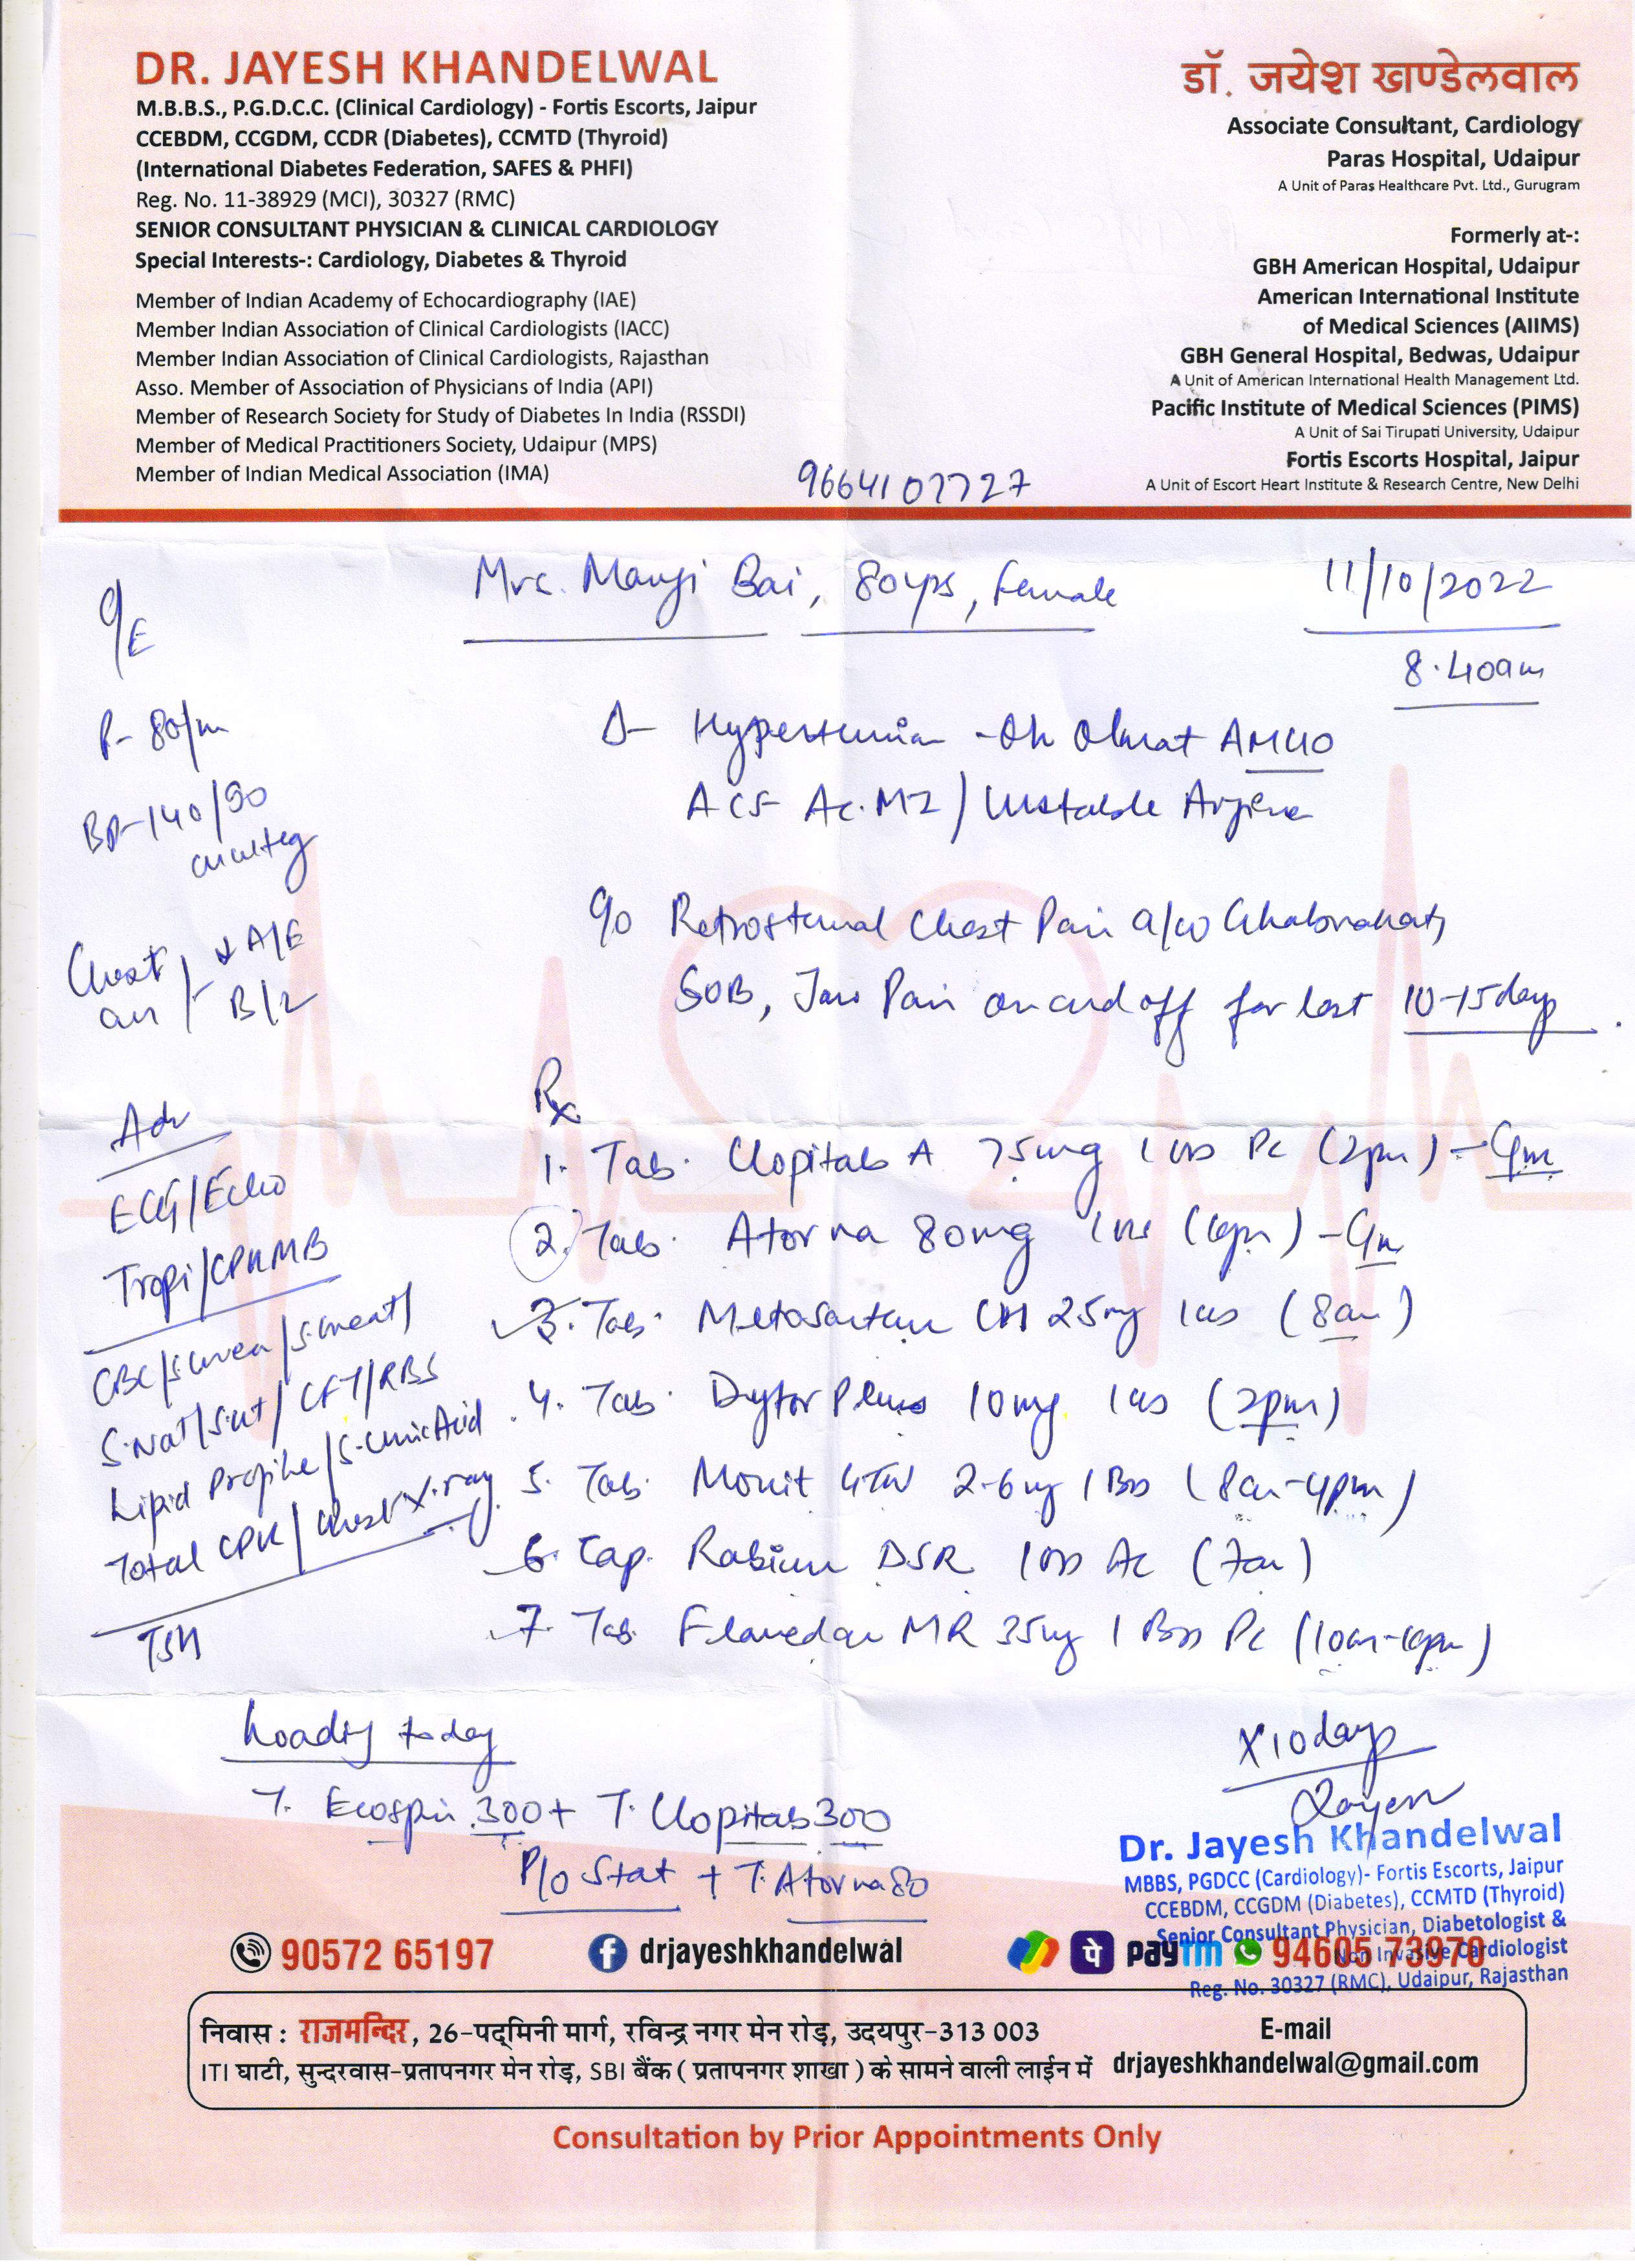 DR. JAYESH KHANDELWAL
M.B.B.S., P.G.D.C.C. (Clinical Cardiology) - Fortis Escorts, Jaipur
CCEBDM, CCGDM, CCDR (Diabetes), CCMTD (Thyroid)
(International Diabetes Federation, SAFES & PHFI)
Reg. No. 11-38929 (MCI), 30327 (RMC)
SENIOR CONSULTANT PHYSICIAN & CLINICAL CARDIOLOGY
Special Interests-: Cardiology, Diabetes & Thyroid
Member of Indian Academy of Echocardiography (IAE)
Member Indian Association of Clinical Cardiologists (IACC)
Member Indian Association of Clinical Cardiologists, Rajasthan
Asso. Member of Association of Physicians of India (API)
Member of Research Society for Study of Diabetes In India (RSSDI)
Member of Medical Practitioners Society, Udaipur (MPS)
Member of Indian Medical Association (IMA)
डॉ. जयेश खाण्डेलवाल
Associate Consultant, Cardiology
Paras Hospital, Udaipur
A Unit of Paras Healthcare Pvt. Ltd., Gurugram
Formerly at-:
GBH American Hospital, Udaipur
American International Institute
of Medical Sciences (AIIMS)
GBH General Hospital, Bedwas, Udaipur
A Unit of American International Health Management Ltd.
Pacific Institute of Medical Sciences (PIMS)
A Unit of Sai Tirupati University, Udaipur
Fortis Escorts Hospital, Jaipur
A Unit of Escort Heart Institute & Research Centre, New Delhi
9664107727
Mrs. Mangi Bai, 80yrs, Female 11/10/2022
8.40am
O/E
P- 80/m
BP- 140/90
mmHg
Chest A/E
B/L
Δ- Hypertension - On Olmat AM40
ACS Ac. MI / Unstable Angina
C/o Retrosternal Chest Pain a/w Ghabrahat,
SOB, Jaw Pain on and off for last 10-15days.
Adv
ECG/Echo
TropI/CPKMB
CBC/S.Urea/S.Creat/
S.Na+/S.K+/LFT/RBS
Lipid Profile/S.Uric Acid
Total CPK/Chest X-ray
TSH
Rx
1. Tab. Clopitab A 75mg 1 OD PC (2pm)
2. Tab. Atorva 80mg 1 HS (10pm)
3. Tab. Metosartan CH 25mg 1 OD (8am)
4. Tab. Dytor Plus 10mg 1 OD (2pm)
5. Tab. Monit GTN 2.6mg 1 BD (8am-4pm)
6. Cap. Rabium DSR 1 OD AC (7am)
7. Tab. Flavedon MR 35mg 1 BD PC (10am-10pm)
x10days
Loading today
T. Ecosprin 300 + T. Clopitab 300
P/O Stat + T. Atorva 80
Dr. Jayesh Khandelwal
MBBS, PGDCC (Cardiology)- Fortis Escorts, Jaipur
CCEBDM, CCGDM (Diabetes), CCMTD (Thyroid)
Senior Consultant Physician, Diabetologist &
Non Invasive Cardiologist
Reg. No. 30327 (RMC), Udaipur, Rajasthan
90572 65197 drjayeshkhandelwal पे paytm 94605 73970
निवास : राजमन्दिर, 26-पद्मिनी मार्ग, रविन्द्र नगर मेन रोड़, उदयपुर-313 003
ITI घाटी, सुन्दरवास-प्रतापनगर मेन रोड़, SBI बैंक ( प्रतापनगर शाखा ) के सामने वाली लाईन में
E-mail
drjayeshkhandelwal@gmail.com
Consultation by Prior Appointments Only